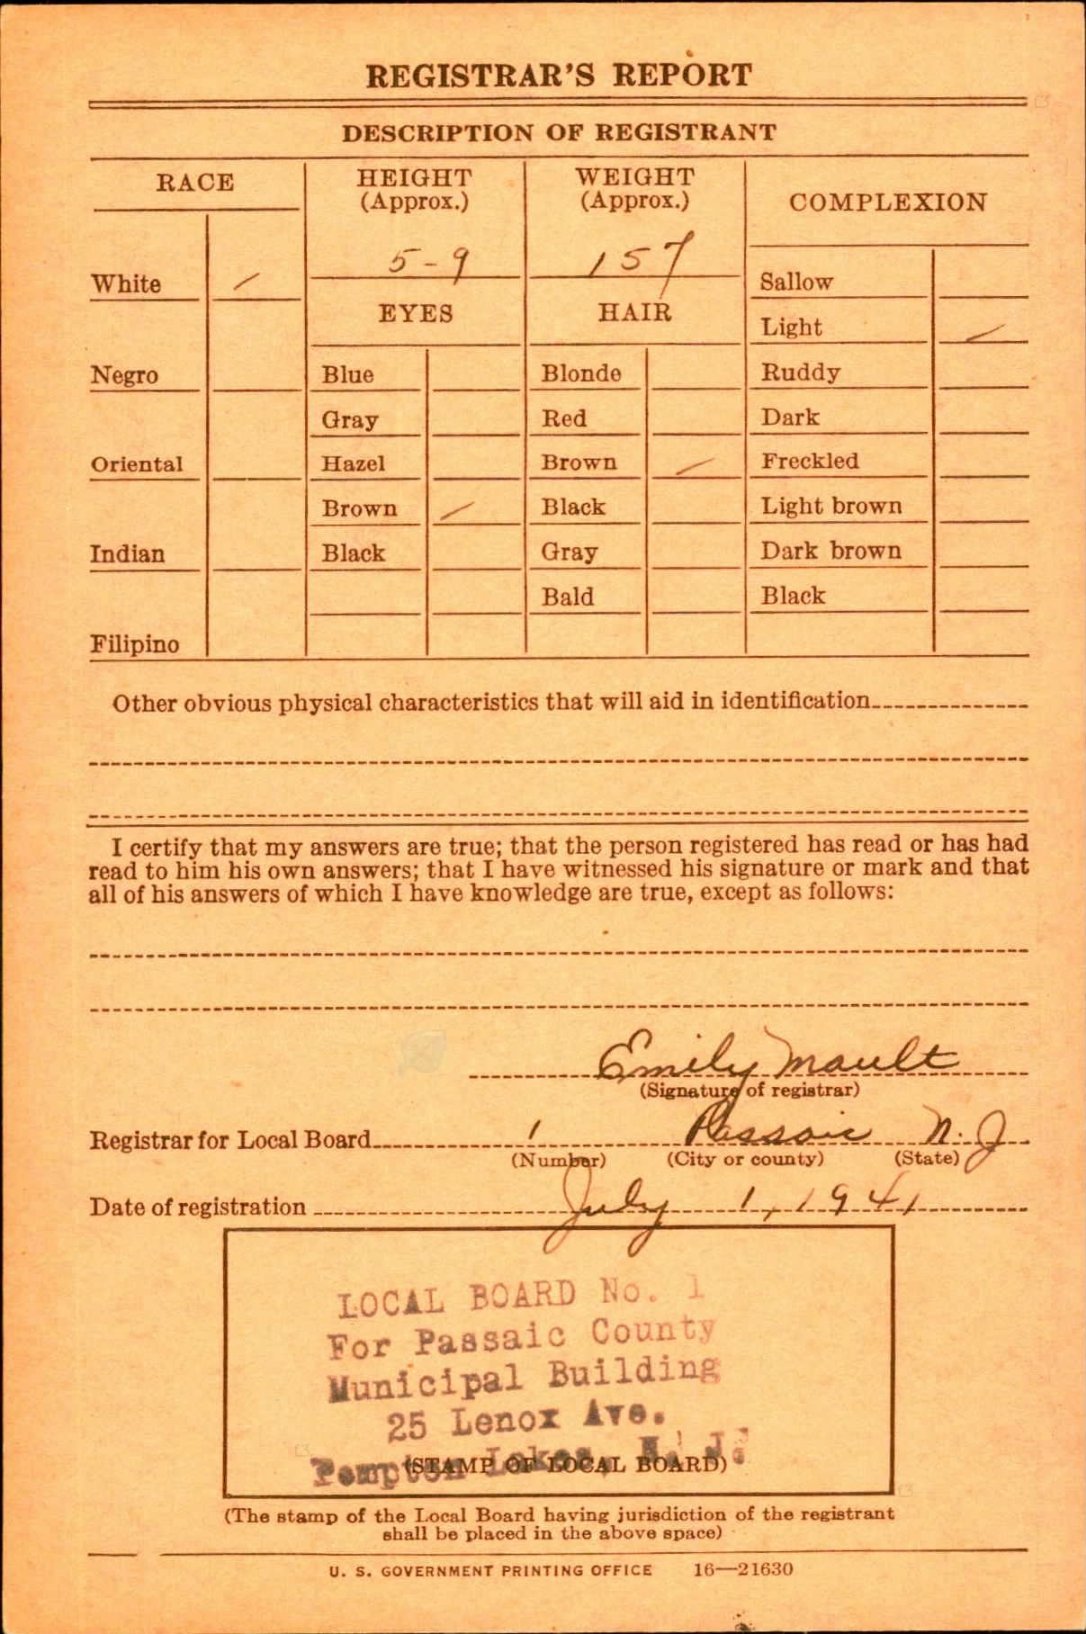 REGISTRAR'S REPORT
DESCRIPTION OF REGISTRANT
RACE
White /
Negro
Oriental
Indian
Filipino
HEIGHT
(Approx.)
5-9
EYES
Blue
Gray
Hazel
Brown /
Black
WEIGHT
(Approx.)
157
HAIR
Blonde
Red
Brown /
Black
Gray
Bald
COMPLEXION
Sallow
Light /
Ruddy
Dark
Freckled
Light brown
Dark brown
Black
Other obvious physical characteristics that will aid in identification
I certify that my answers are true; that the person registered has read or has had
read to him his own answers; that I have witnessed his signature or mark and that
all of his answers of which I have knowledge are true, except as follows:
Emily Mault
(Signature of registrar)
Registrar for Local Board 1 Passaic N. J.
(Number) (City or county) (State)
Date of registration July 1, 1941
LOCAL BOARD No. 1
For Passaic County
Municipal Building
25 Lenox Ave.
Pompton Lakes, N. J.
(STAMP OF LOCAL BOARD)
(The stamp of the Local Board having jurisdiction of the registrant
shall be placed in the above space)
U. S. GOVERNMENT PRINTING OFFICE 16—21630